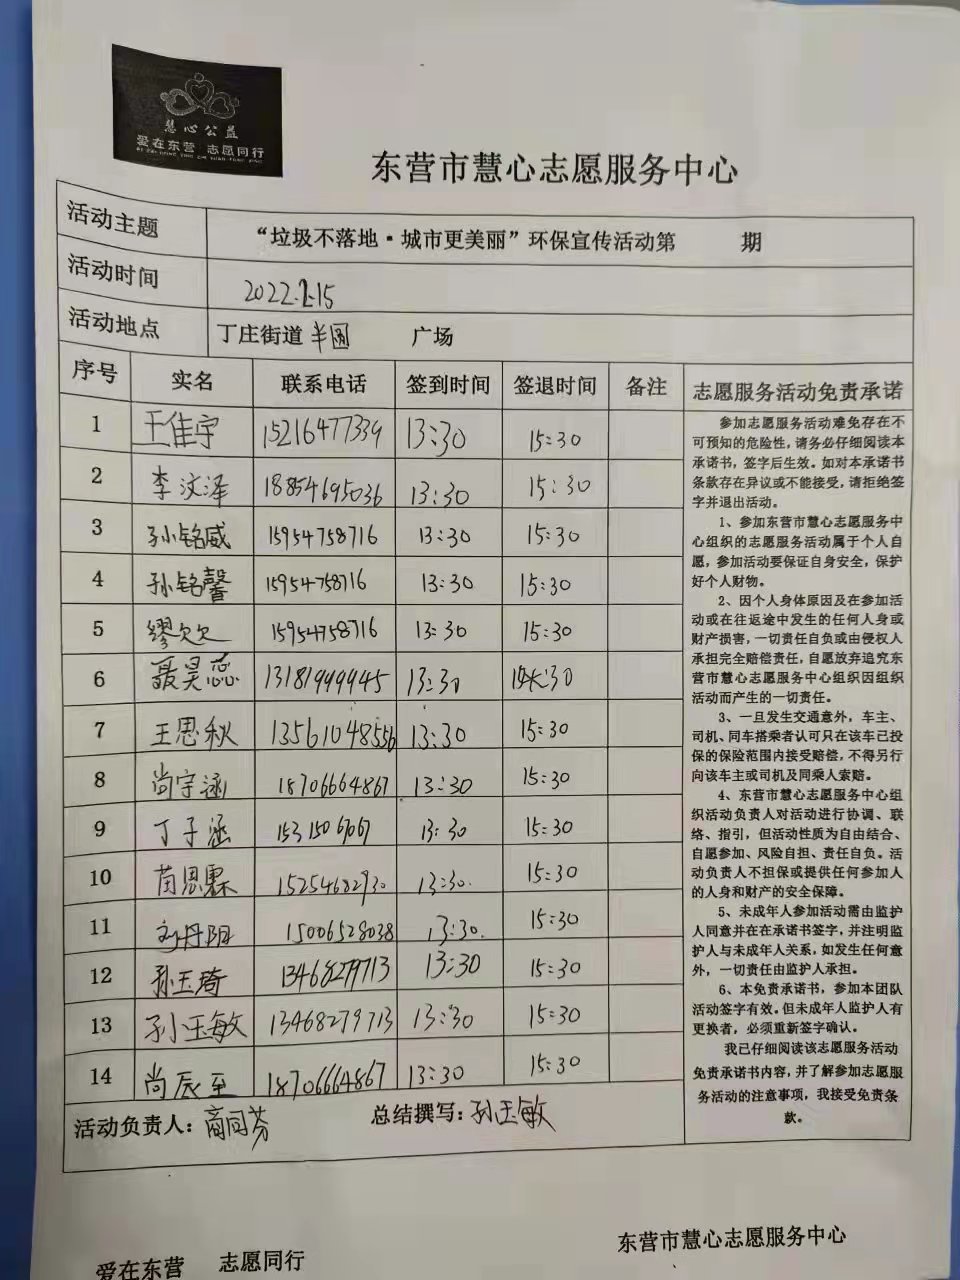 慧心公益
爱在东营 志愿同行
东营市慧心志愿服务中心
活动主题 “垃圾不落地·城市更美丽”环保宣传活动第 期
活动时间 2022.1.15
活动地点 丁庄街道 半圆 广场
序号 实名 联系电话 签到时间 签退时间 备注
1 王佳宇 15216477339 13:30 15:30
2 李汶泽 18854695036 13:30 15:30
3 孙铭威 15954758716 13:30 15:30
4 孙铭馨 15954758716 13:30 15:30
5 缪欠欠 15954758716 13:30 15:30
6 聂昊蕊 13181999945 13:30 15:30
7 王思秋 13561048556 13:30 15:30
8 尚宇涵 18706664867 13:30 15:30
9 丁子涵 13:30 15:30
10 苗思霖 15254682930 13:30. 15:30
11 刘丹阳 15006528038 13:30. 15:30
12 孙玉琦 13468279713 13:30 15:30
13 孙玉敏 13468279713 13:30 15:30
14 尚辰至 18706664867 13:30 15:30
活动负责人：商同芬 总结撰写：孙玉敏
志愿服务活动免责承诺
参加志愿服务活动难免存在不
可预知的危险性，请务必仔细阅读本
承诺书，签字后生效。如对本承诺书
条款存在异议或不能接受，请拒绝签
字并退出活动。
1、参加东营市慧心志愿服务中
心组织的志愿服务活动属于个人自
愿，参加活动要保证自身安全，保护
好个人财物。
2、因个人身体原因及在参加活
动或在往返途中发生的任何人身或
财产损害，一切责任自负或由侵权人
承担完全赔偿责任，自愿放弃追究东
营市慧心志愿服务中心组织因组织
活动而产生的一切责任。
3、一旦发生交通意外，车主、
司机、同车搭乘者认可只在该车已投
保的保险范围内接受赔偿，不得另行
向该车主或司机及同乘人索赔。
4、东营市慧心志愿服务中心组
织活动负责人对活动进行协调、联
络、指引，但活动性质为自由结合、
自愿参加、风险自担、责任自负。活
动负责人不担保或提供任何参加人
的人身和财产的安全保障。
5、未成年人参加活动需由监护
人同意并在在承诺书签字，并注明监
护人与未成年人关系，如发生任何意
外，一切责任由监护人承担。
6、本免责承诺书，参加本团队
活动签字有效。但未成年人监护人有
更换者，必须重新签字确认。
我已仔细阅读该志愿服务活动
免责承诺书内容，并了解参加志愿服
务活动的注意事项，我接受免责条
款。
爱在东营 志愿同行
东营市慧心志愿服务中心